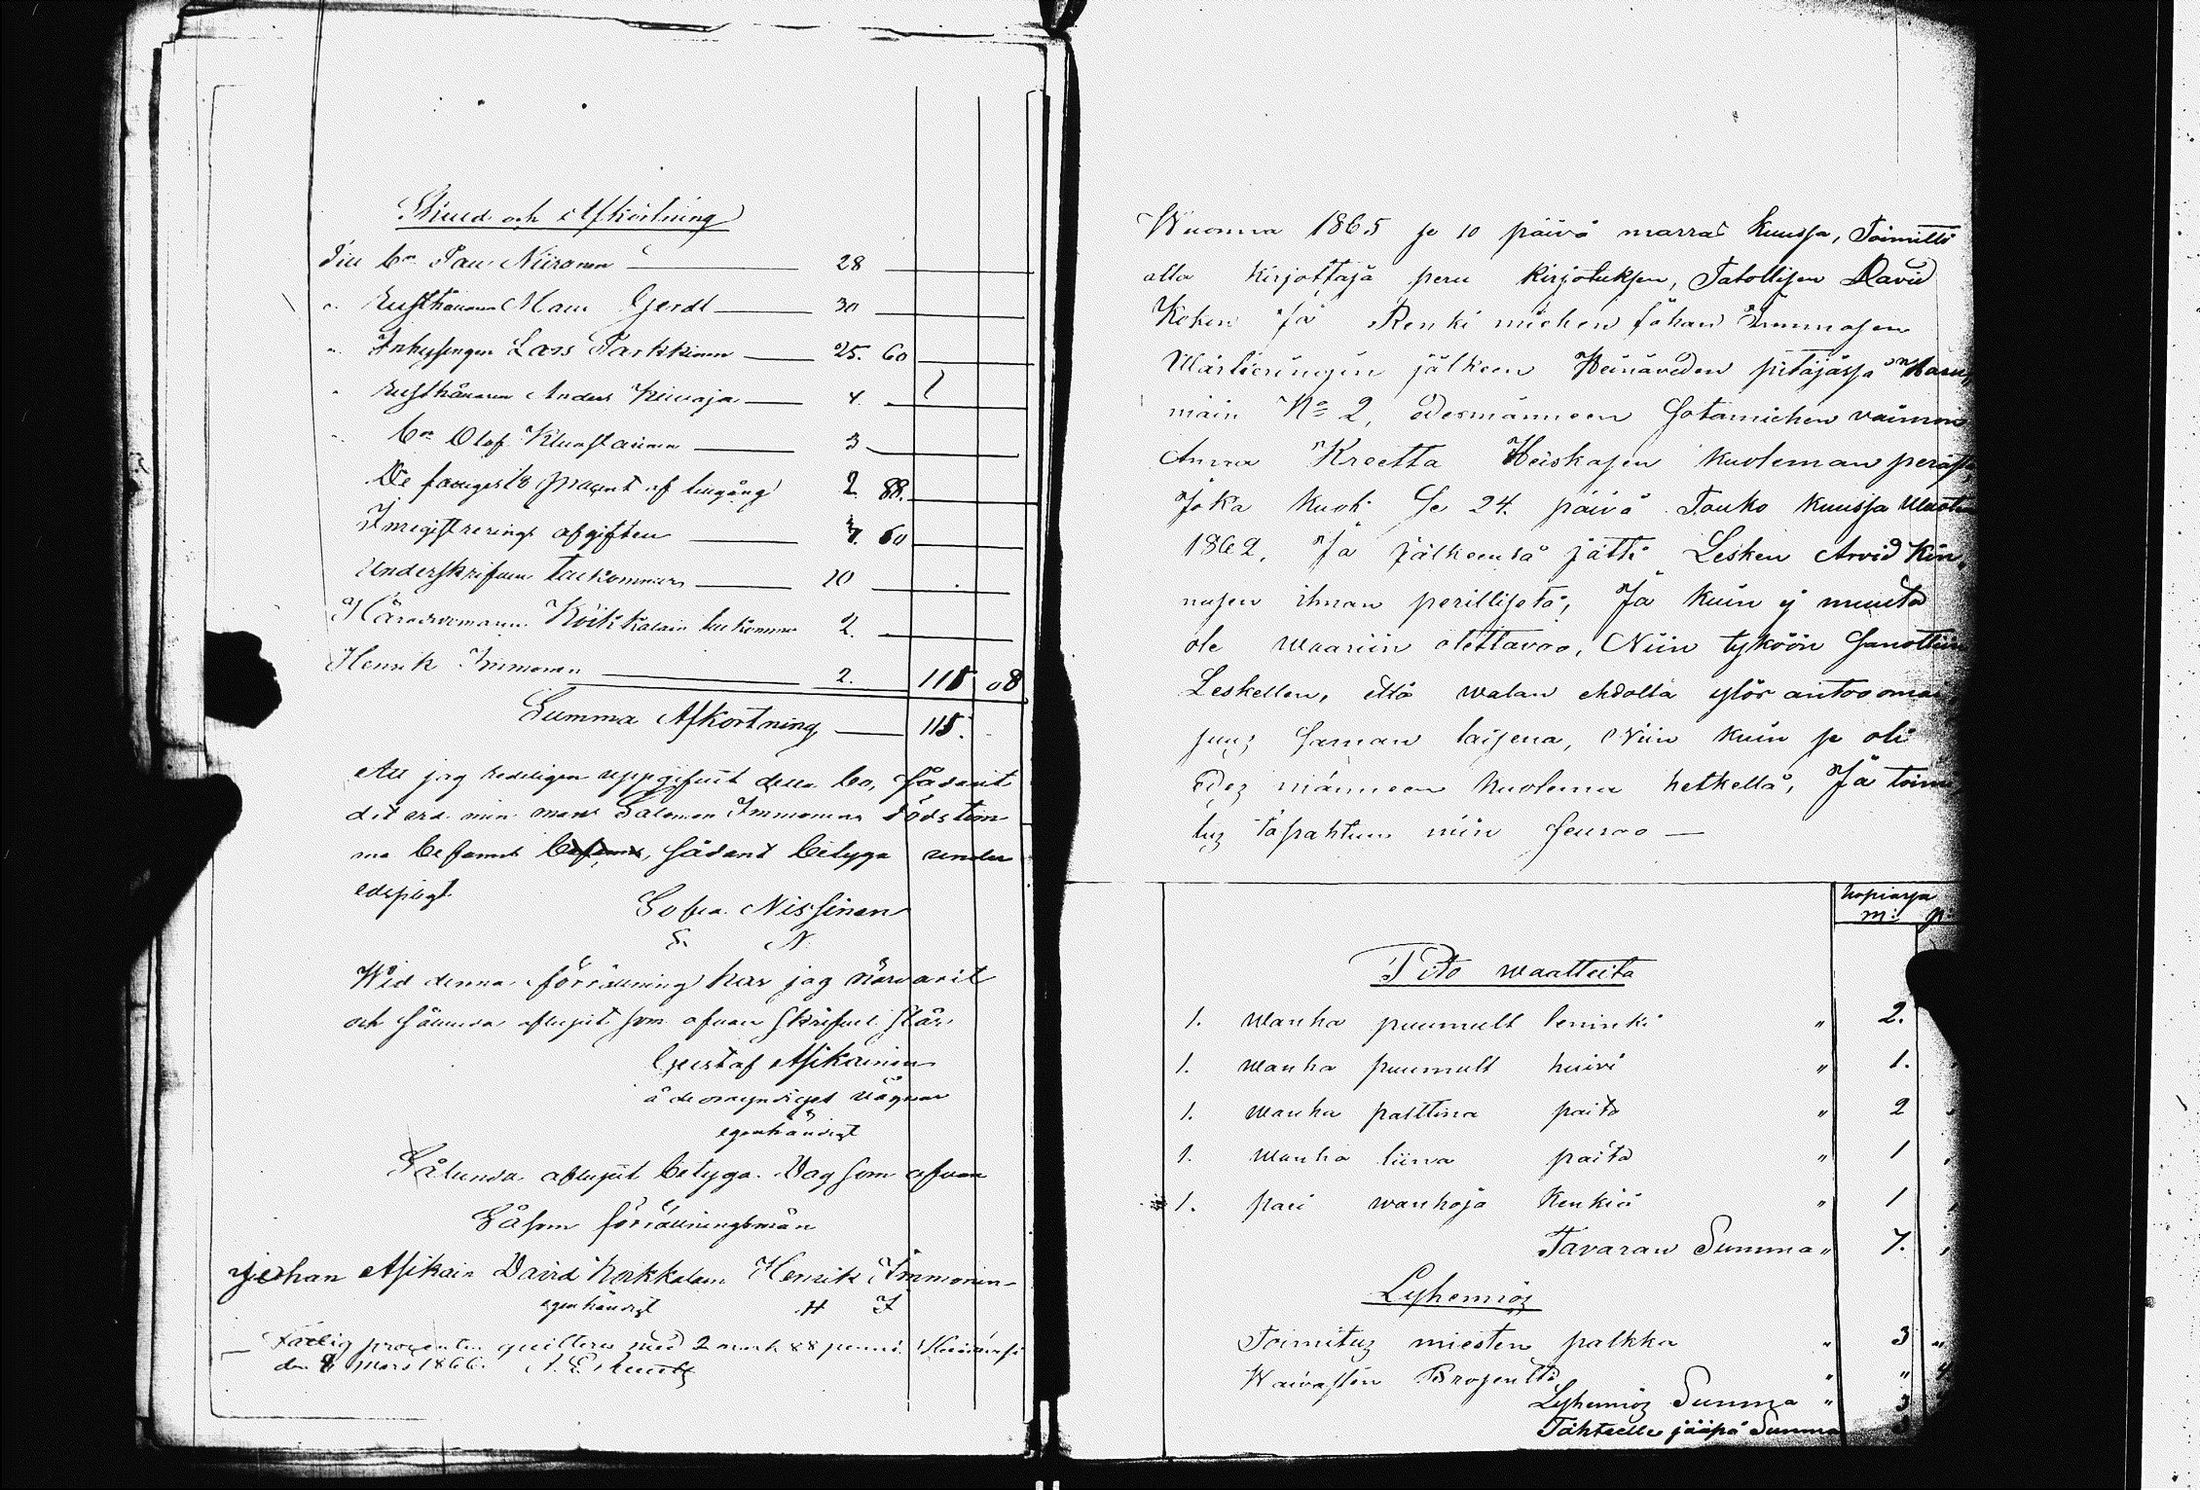 Skuld och Afkortning
Till Bn Paul Niiranen 28
" Enkshänan Mari Gerdt 30
" Inhysingen Lars Parkkinen 25. 60
" Anders Kiuvaja 4.
" Bn Olof 3
De fattiges procent af behållning 2 88.
Inregistrerings afgiften 7. 60
Underskrifven tillkommer 20
Häradsdomaren Koikkalain tillkommer 2.
Henrik Immonen 2. 115 08
Summa Afkortning 115.
Att jag redeligen uppgifvit detta bo, sådant
det var min mans Salomon Immonens dödstim-
ma befanns, sådant betyga under
edsplegt.
Sofia Nissinen
S. N.
Wid denna förrättning har jag närvarit
och sålunda aflupit som ofvan skrifvit står.
Gustaf Asikainen
å de omyndiges vägnar
egenhändigt
Sålunda aflupit betyga. Dag som ofvan
Såsom förrättningsmän
Johan Asikain David Koikkalain Henrik Immonen
egenhändigt H I
Fattig procenten qvitteras med 2 mark 88 penni. Heinävesi
den 9 Mars 1866.
Wuonna 1865 se 10 päivä marras kuussa, Toimitti
alla kirjottaja peru kirjotuksen, Talollisen David
Kokin Ja Renki miehen Johan Immosen
Wärteeringin jälkeen Heinäveden pitäjässä
No 2, edesmänneen Sotamiehen vaimon
Anna Kreetta Heiskasen kuoleman perästä,
Joka kuoli Se 24. päivä Touko kuussa
1862. Ja jälkeensä jätti Lesken Arvid Kin-
nusen ilman perillisetä, Ja kuin ej muuta
ole waariin otettavaa, Niin tyköön Sanottiin
Leskellen, että walan ehdolla ylös antaa omai-
suuz Saman laisena, Niin kuin se oli
Edez männeen kuolema hetkellä, Ja toimi-
tuz tapahtuu niin Seuraa —
kopiassa
m: p:
Pito waatteita
1. wanha puumult leninki " 2.
1. wanha puumult huivi " 1.
1. wanha palttina paita " 2
1. wanha liina paita " 1
1. pari wanhoja Kenkiä " 1
Tavaran Summa " 7.
Lyhennöz
Toimituz miesten palkka " 3 "
Waivasten Prosenttia " " 4
Lyhennöz Summa " 3
Tähteelle jääpä Summa 3